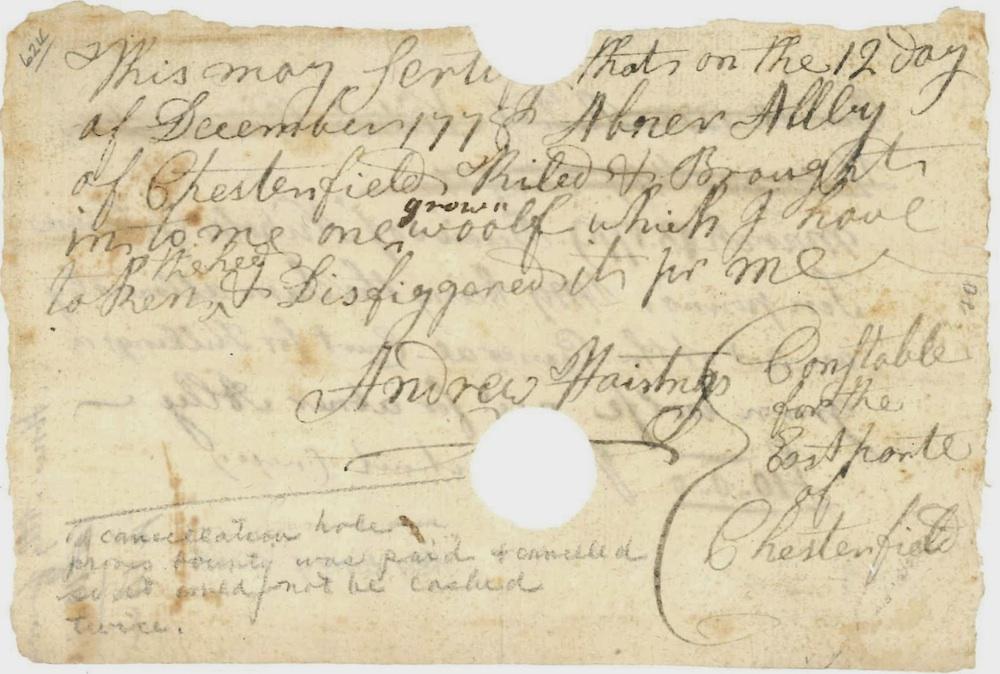 624
This may Serti that on the 12 day
of December 1778 Abner Allby
of Chestenfield Kiled & Brought
in to me one grown woolf which I have
taken the hed & Disfiggered it pr me
Andrew Haistings Constable
for the
East parte
of
Chestenfield
cancellation hole
proves bounty was paid & cancelled
so it could not be cashed
twice.